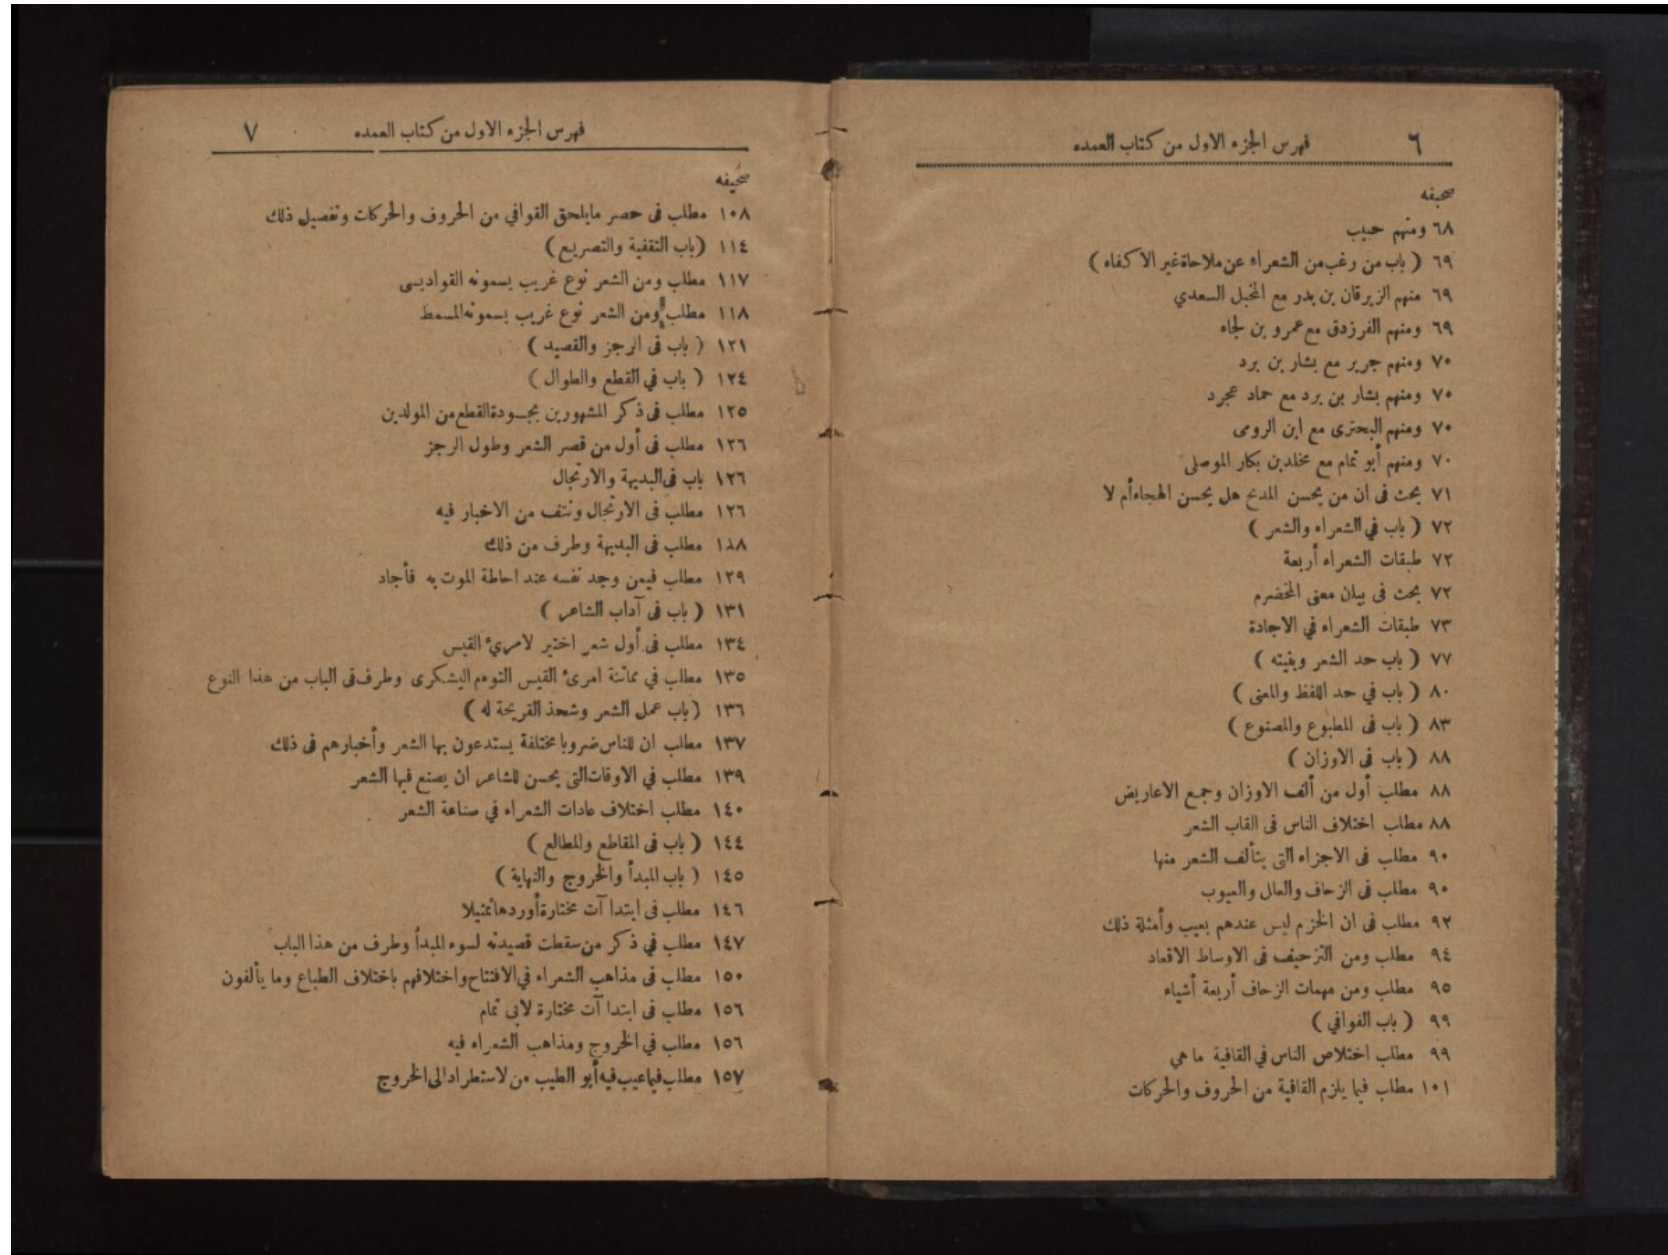 ٦ فهرس الجزء الاول من كتاب العمده
صحيفه
٦٨ ومنهم حبيب
٦٩ ( باب من رغب من الشعراء عن ملاحاة غير الاكفاء )
٦٩ منهم الزبرقان بن بدر مع المخبل السعدي
٦٩ ومنهم الفرزدق مع عمرو بن لجاء
٧٠ ومنهم جرير مع بشار بن برد
٧٠ ومنهم بشار بن برد مع حماد عجرد
٧٠ ومنهم البحترى مع ابن الرومى
٧٠ ومنهم أبو تمام مع مخلد بن بكار الموصلى
٧١ بحث فى ان من يحسن المدح هل يحسن الهجاء أم لا
٧٢ ( باب في الشعراء والشعر )
٧٢ طبقات الشعراء أربعة
٧٢ بحث فى بيان معنى المخضرم
٧٣ طبقات الشعراء في الاجادة
٧٧ ( باب حد الشعر وبنيته )
٨٠ ( باب في حد اللفظ والمعنى )
٨٣ ( باب فى المطبوع والمصنوع )
٨٨ ( باب فى الاوزان )
٨٨ مطلب أول من ألف الاوزان وجمع الاعاريض
٨٨ مطلب اختلاف الناس فى القاب الشعر
٩٠ مطلب فى الاجزاء التى يتألف الشعر منها
٩٠ مطلب فى الزحاف والعال والعيوب
٩٢ مطلب فى ان الخزم ليس عندهم بعيب وأمثلة ذلك
٩٤ مطلب ومن التزحيف فى الاوساط الاقعاد
٩٥ مطلب ومن مهمات الزحاف أربعة أشياء
٩٩ ( باب القوافي )
٩٩ مطلب اختلاص الناس في القافية ما هي
١٠١ مطلب فيما يلزم القافية من الحروف والحركات
فهرس الجزء الاول من كتاب العمده ٧
صحيفه
١٠٨ مطلب فى حصر مايلحق القوافي من الحروف والحركات وتفصيل ذلك
١١٤ (باب التقفية والتصريع)
١١٧ مطلب ومن الشعر نوع غريب يسمونه القواديسى
١١٨ مطلب ومن الشعر نوع غريب يسمونه المسمط
١٢١ ( باب فى الرجز والقصيد )
١٢٤ ( باب في القطع والطوال )
١٢٥ مطلب فى ذكر المشهورين بجودة القطع من المولدين
١٢٦ مطلب فى أول من قصر الشعر وطول الرجز
١٢٦ باب فى البديهة والارتجال
١٢٦ مطلب فى الارتجال ونتف من الاخبار فيه
١٢٨ مطلب فى البديهة وطرف من ذلك
١٢٩ مطلب فيمن وجد نفسه عند احاطة الموت به فأجاد
١٣١ ( باب فى آداب الشاعر )
١٣٤ مطلب فى أول شعر اختير لامريء القيس
١٣٥ مطلب في مماتنة امرئ القيس التوءم اليشكرى وطرف فى الباب من هذا النوع
١٣٦ (باب عمل الشعر وشحذ القريحة له )
١٣٧ مطلب ان للناس ضروبا مختلفة يستدعون بها الشعر وأخبارهم فى ذلك
١٣٩ مطلب في الاوقات التى يحسن للشاعر ان يصنع فيها الشعر
١٤٠ مطلب اختلاف عادات الشعراء في صناعة الشعر
١٤٤ ( باب فى المقاطع والمطالع )
١٤٥ ( باب المبدأ والخروج والنهاية )
١٤٦ مطلب فى ابتدا آت مختارة أوردها تمثيلا
١٤٧ مطلب في ذكر من سقطت قصيدته لسوء المبدأ وطرف من هذا الباب
١٥٠ مطلب فى مذاهب الشعراء في الافتتاح واختلافهم باختلاف الطباع وما يألفون
١٥٦ مطلب فى ابتدا آت مختارة لابى تمام
١٥٦ مطلب في الخروج ومذاهب الشعراء فيه
١٥٧ مطلب فيما عيب فيه أبو الطيب من لاستطراد الى الخروج